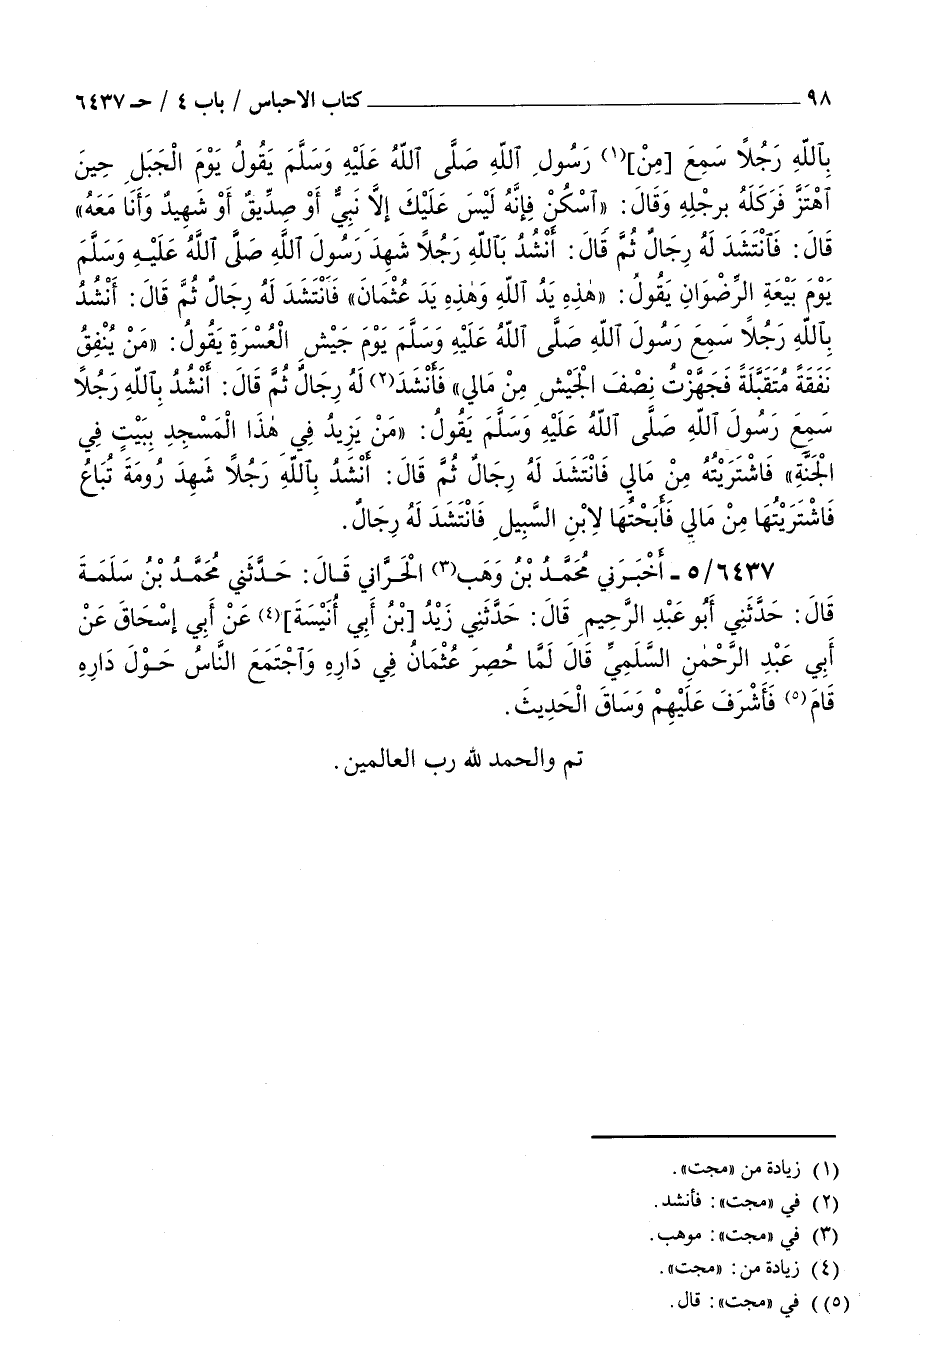 ٩٨ ــــــــــ كتاب الاحباس / باب ٤ / حـ ٦٤٣٧
بِٱللَّهِ رَجُلاً سَمِعَ [مِنْ]⁽١⁾ رَسُولِ ٱللَّهِ صَلَّى ٱللَّهُ عَلَيْهِ وَسَلَّمَ يَقُولُ يَوْمَ الْجَبَلِ حِينَ
ٱهْتَزَّ فَرَكَلَهُ بِرِجْلِهِ وَقَالَ: «ٱسْكُنْ فَإِنَّهُ لَيْسَ عَلَيْكَ إِلاَّ نَبِيٌّ أَوْ صِدِّيقٌ أَوْ شَهِيدٌ وَأَنَا مَعَهُ»
قَالَ: فَٱنْتَشَدَ لَهُ رِجَالٌ ثُمَّ قَالَ: أَنْشُدُ بِٱللَّهِ رَجُلاً شَهِدَ رَسُولَ اللَّهِ صَلَّى ٱللَّهُ عَلَيْهِ وَسَلَّمَ
يَوْمَ بَيْعَةِ الرِّضْوَانِ يَقُولُ: «هٰذِهِ يَدُ اللَّهِ وَهٰذِهِ يَدَ عُثْمَانَ» فَٱنْتَشَدَ لَهُ رِجَالٌ ثُمَّ قَالَ: أَنْشُدُ
بِٱللَّهِ رَجُلاً سَمِعَ رَسُولَ ٱللَّهِ صَلَّى ٱللَّهُ عَلَيْهِ وَسَلَّمَ يَوْمَ جَيْشِ الْعُسْرَةِ يَقُولُ: «مَنْ يُنْفِقُ
نَفَقَةً مُتَقَبَّلَةً فَجَهَّزْتُ نِصْفَ الْجَيْشِ مِنْ مَالِي» فَأَنْشَدَ⁽٢⁾ لَهُ رِجَالٌ ثُمَّ قَالَ: أَنْشُدُ بِٱللَّهِ رَجُلاً
سَمِعَ رَسُولَ ٱللَّهِ صَلَّى ٱللَّهُ عَلَيْهِ وَسَلَّمَ يَقُولُ: «مَنْ يَزِيدُ فِي هٰذَا الْمَسْجِدِ بِبَيْتٍ فِي
الْجَنَّةِ» فَاشْتَرَيْتُهُ مِنْ مَالِي فَانْتَشَدَ لَهُ رِجَالٌ ثُمَّ قَالَ: أَنْشُدُ بِٱللَّهِ رَجُلاً شَهِدَ رُومَةَ تُبَاعُ
فَاشْتَرَيْتُهَا مِنْ مَالِي فَأَبَحْتُهَا لِابْنِ السَّبِيلِ فَانْتَشَدَ لَهُ رِجَالٌ.
٥/٦٤٣٧ ـ أَخْبَرَنِي مُحَمَّدُ بْنُ وَهَب⁽٣⁾ الْحَرَّانِي قَالَ: حَدَّثَنِي مُحَمَّدُ بْنُ سَلَمَةَ
قَالَ: حَدَّثَنِي أَبُو عَبْدِ الرَّحِيمِ قَالَ: حَدَّثَنِي زَيْدُ [بْنُ أَبِي أُنَيْسَةَ]⁽٤⁾ عَنْ أَبِي إِسْحَاقَ عَنْ
أَبِي عَبْدِ الرَّحْمٰنِ السُّلَمِيِّ قَالَ لَمَّا حُصِرَ عُثْمَانُ فِي دَارِهِ وَٱجْتَمَعَ النَّاسُ حَوْلَ دَارِهِ
قَامَ⁽٥⁾ فَأَشْرَفَ عَلَيْهِمْ وَسَاقَ الْحَدِيثَ.
تم والحمد لله رب العالمين.
(١) زيادة من «مجت».
(٢) في «مجت»: فأنشد.
(٣) في «مجت»: موهب.
(٤) زيادة من: «مجت».
(٥)) في «مجت»: قال.